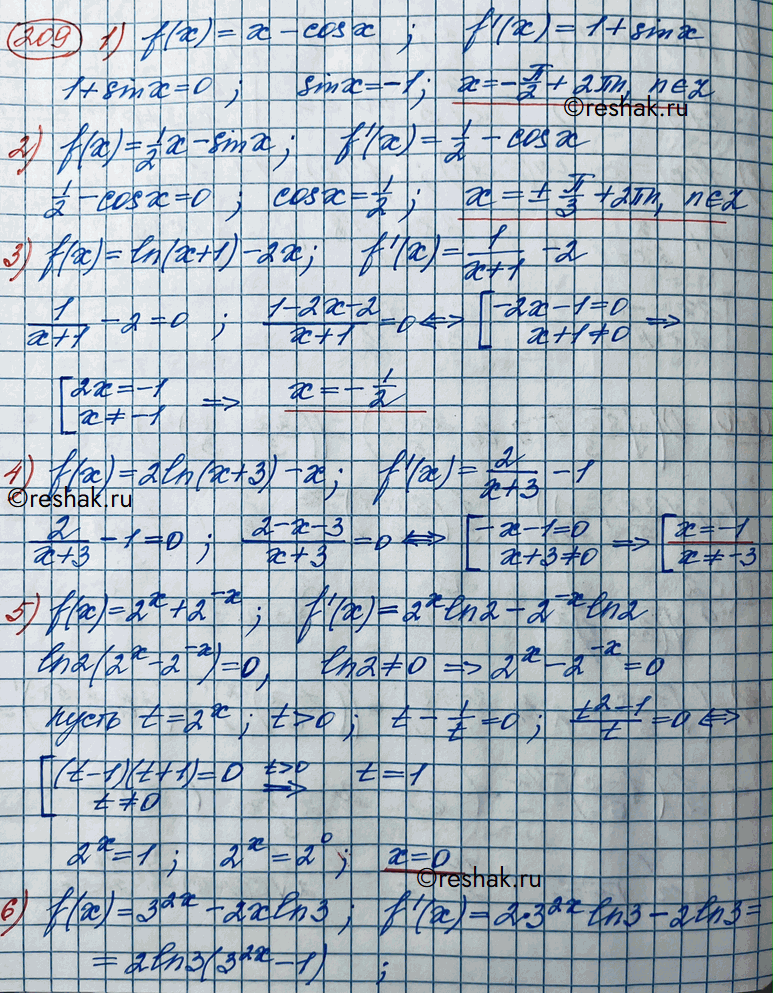 209 1) f(x) = x - cosx ; f'(x) = 1 + sinx
1 + sinx = 0 ; sinx = -1 ; x = -π/2 + 2πn, n∈Z
©reshak.ru
2) f(x) = 1/2 x - sinx ; f'(x) = 1/2 - cosx
1/2 - cosx = 0 ; cosx = 1/2 ; x = ± π/3 + 2πn, n∈Z
3) f(x) = ln(x+1) - 2x ; f'(x) = 1/(x+1) - 2
1/(x+1) - 2 = 0 ; (1-2x-2)/(x+1) = 0 <=> [ -2x-1=0 =>
x+1≠0
[ 2x = -1 => x = - 1/2
x ≠ -1
4) f(x) = 2ln(x+3) - x ; f'(x) = 2/(x+3) - 1
©reshak.ru
2/(x+3) - 1 = 0 ; (2-x-3)/(x+3) = 0 <=> [ -x-1=0 => [ x=-1
x+3≠0 x≠-3
5) f(x) = 2^x + 2^-x ; f'(x) = 2^x ln2 - 2^-x ln2
ln2(2^x - 2^-x) = 0, ln2 ≠ 0 => 2^x - 2^-x = 0
пусть t = 2^x ; t>0 ; t - 1/t = 0 ; (t^2-1)/t = 0 <=>
[ (t-1)(t+1) = 0 t>0 => t = 1
t≠0
2^x = 1 ; 2^x = 2^0 ; x = 0
©reshak.ru
6) f(x) = 3^2x - 2xln3 ; f'(x) = 2·3^2x ln3 - 2ln3 =
= 2ln3(3^2x - 1) ;